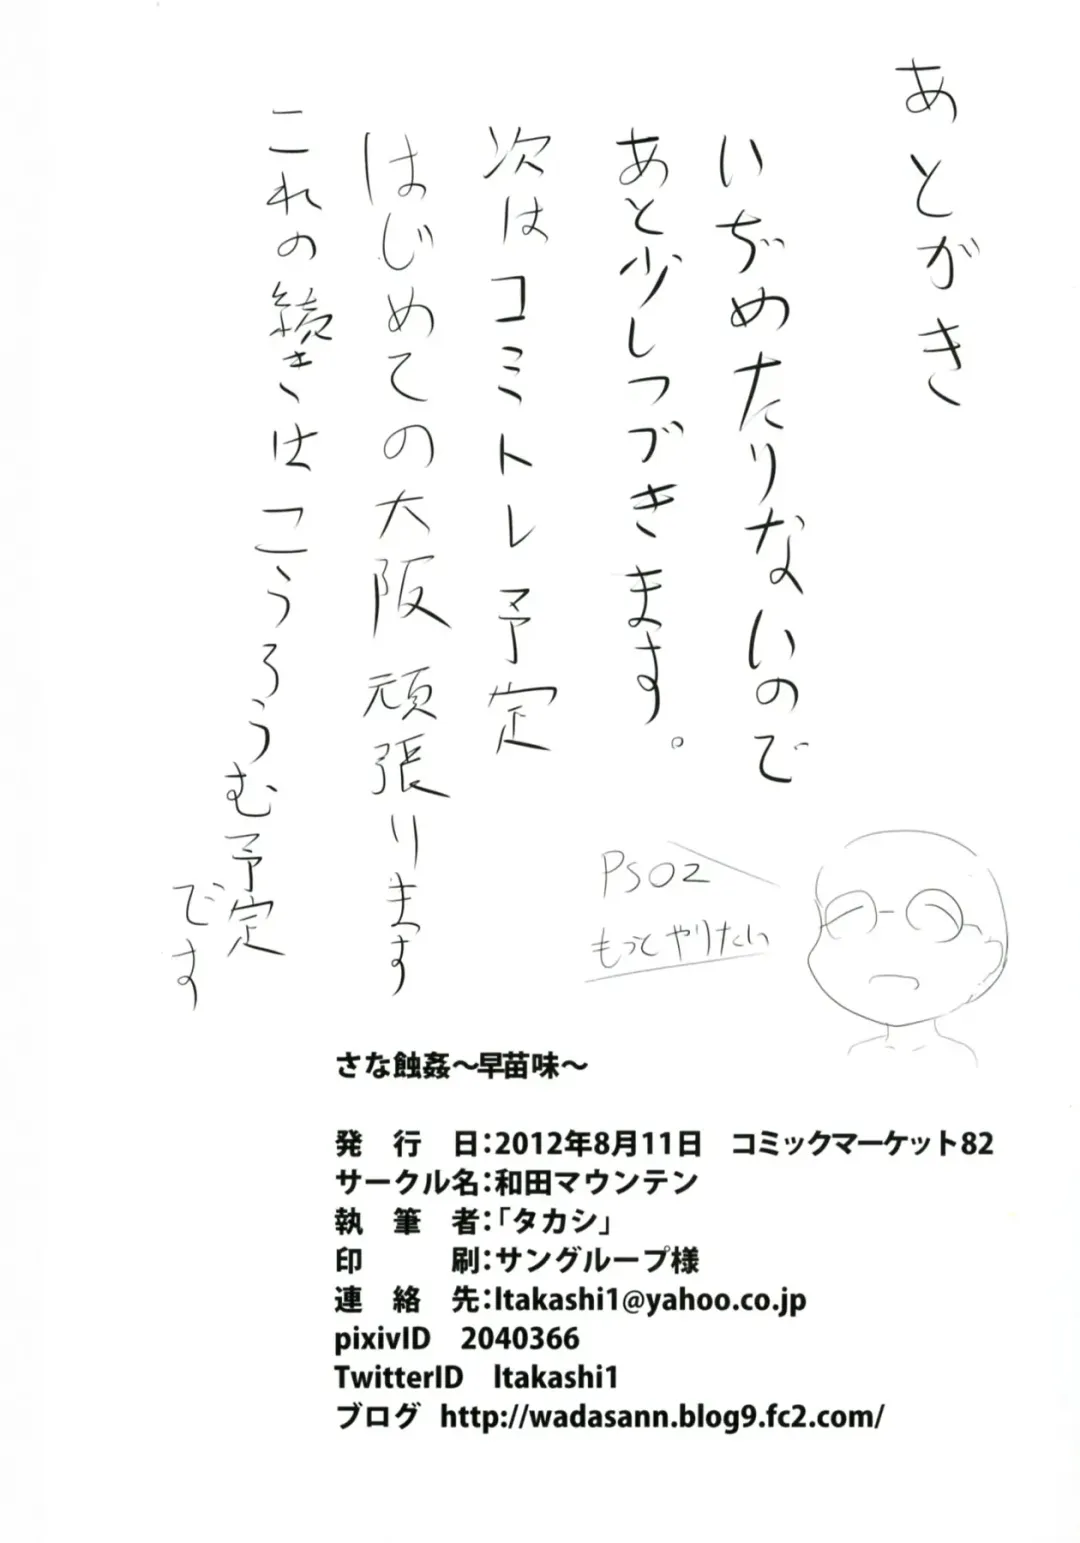 あとがき
いぢめたりないので
あと少しつづきます。
次はコミトレ予定
はじめての大阪頑張ります
これの続きはこうろうむ予定
です
PSO2
もっとやりたい
さな蝕姦～早苗味～
発　行　日：2012年8月11日　コミックマーケット82
サークル名：和田マウンテン
執　筆　者：「タカシ」
印　　　刷：サングループ様
連　絡　先：ltakashi1@yahoo.co.jp
pixivID　2040366
TwitterID　ltakashi1
ブログ　http://wadasann.blog9.fc2.com/